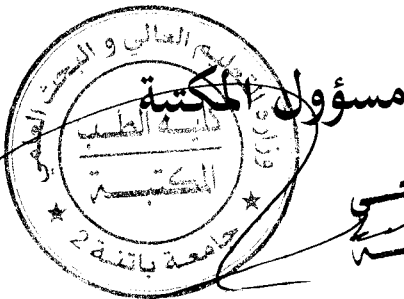 مسؤول المكتبة
وزارة التعليم العالي و البحث العلمي
كلية الطب
المكتبة
جامعة باتنة 2